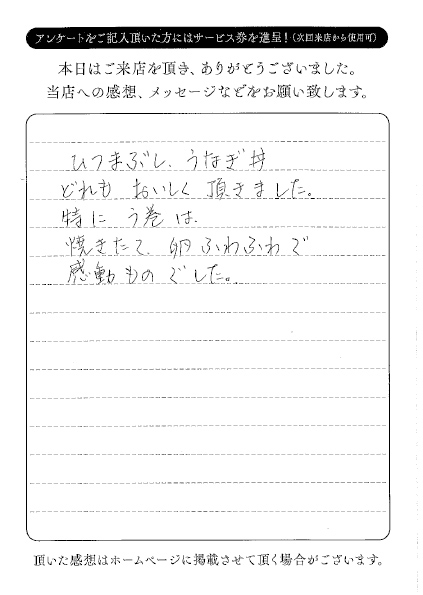 アンケートをご記入頂いた方にはサービス券を進呈！（次回来店から使用可）
本日はご来店を頂き、ありがとうございました。
当店への感想、メッセージなどをお願い致します。
ひつまぶし、うなぎ丼
どれも おいしく 頂きました。
特に う巻 は、
焼きたて、卵 ふわふわ で
感動 もの でした。
頂いた感想はホームページに掲載させて頂く場合がございます。